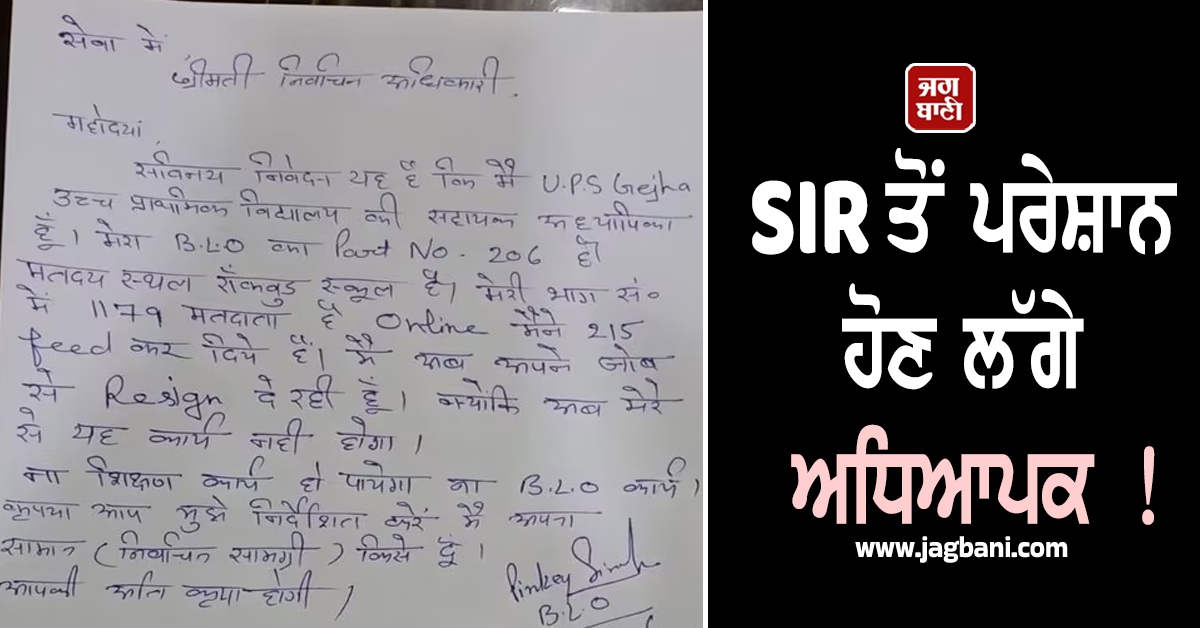 सेवा में
श्रीमती निर्वाचन अधिकारी.
महोदया,
सविनय निवेदन यह है कि मै U.P.S Gejha
उच्च प्राथमिक विद्यालय की सहायक अध्यापिका
हूँ। मेरा B.L.O का Part No. 206 है।
मतदय स्थल रॉकवुड स्कूल है। मेरी भाग सं०
में 1179 मतदाता है Online मैने 215
feed कर दिये हैं। मै अब अपने जोब
से Resign दे रही हूँ। क्योंकि अब मेरे
से यह कार्य नही होगा।
ना शिक्षण कार्य हो पायेगा ना B.L.O कार्य।
कृपया आप मुझे निर्देशित करें मै अपना
सामान (निर्वाचन सामग्री) किसे दूँ।
आपकी अति कृपा होगी।
Pinkey Singh
B.L.O
ਜਗ
ਬਾਣੀ
SIR ਤੋਂ ਪਰੇਸ਼ਾਨ
ਹੋਣ ਲੱਗੇ
ਅਧਿਆਪਕ !
www.jagbani.com